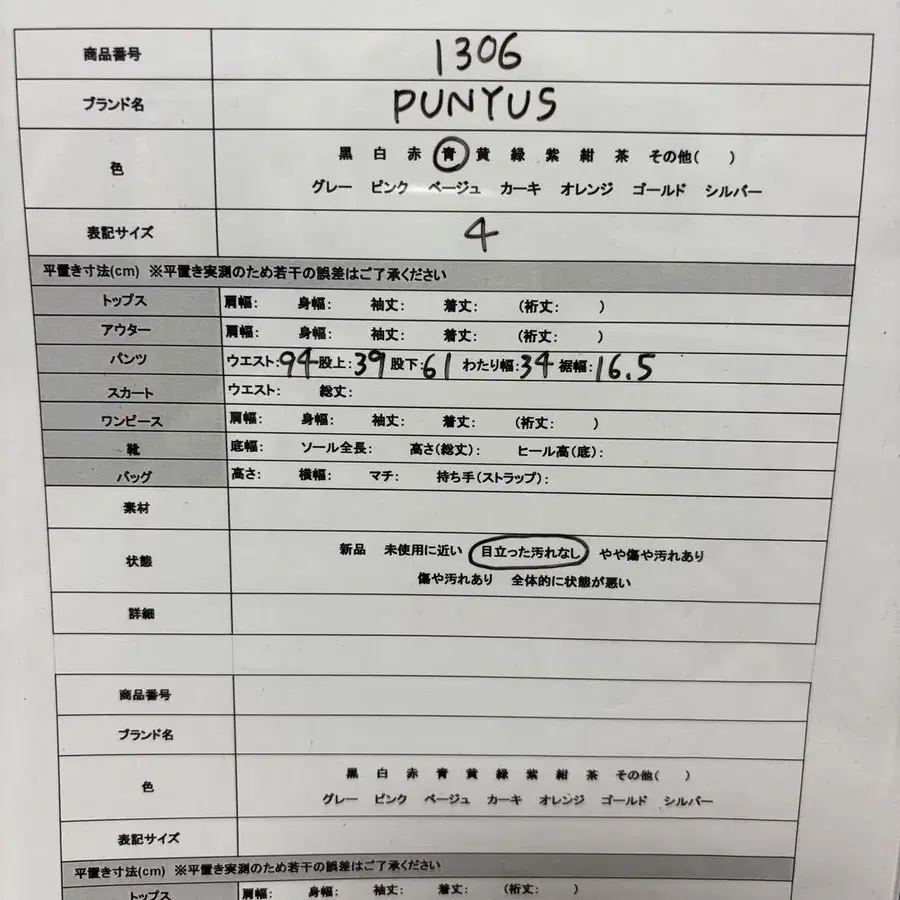 商品番号 1306
ブランド名 PUNYUS
色 黒 白 赤 青 黄 緑 紫 紺 茶 その他( )
グレー ピンク ベージュ カーキ オレンジ ゴールド シルバー
表記サイズ 4
平置き寸法(cm) ※平置き実測のため若干の誤差はご了承ください
トップス 肩幅: 身幅: 袖丈: 着丈: (裄丈: )
アウター 肩幅: 身幅: 袖丈: 着丈: (裄丈: )
パンツ ウエスト:94 股上:39 股下:61 わたり幅:34 裾幅:16.5
スカート ウエスト: 総丈:
ワンピース 肩幅: 身幅: 袖丈: 着丈: (裄丈: )
靴 底幅: ソール全長: 高さ(総丈): ヒール高(底):
バッグ 高さ: 横幅: マチ: 持ち手(ストラップ):
素材
状態 新品 未使用に近い 目立った汚れなし やや傷や汚れあり
傷や汚れあり 全体的に状態が悪い
詳細
商品番号
ブランド名
色 黒 白 赤 青 黄 緑 紫 紺 茶 その他( )
グレー ピンク ベージュ カーキ オレンジ ゴールド シルバー
表記サイズ
平置き寸法(cm) ※平置き実測のため若干の誤差はご了承ください
トップス 肩幅: 身幅: 袖丈: 着丈: (裄丈: )